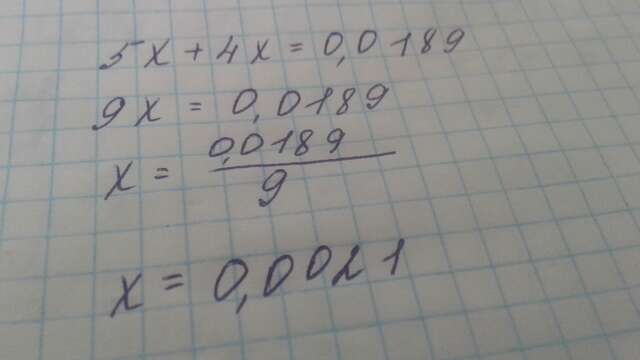 5x + 4x = 0,0189
9x = 0,0189
x = 0,0189/9
x = 0,0021